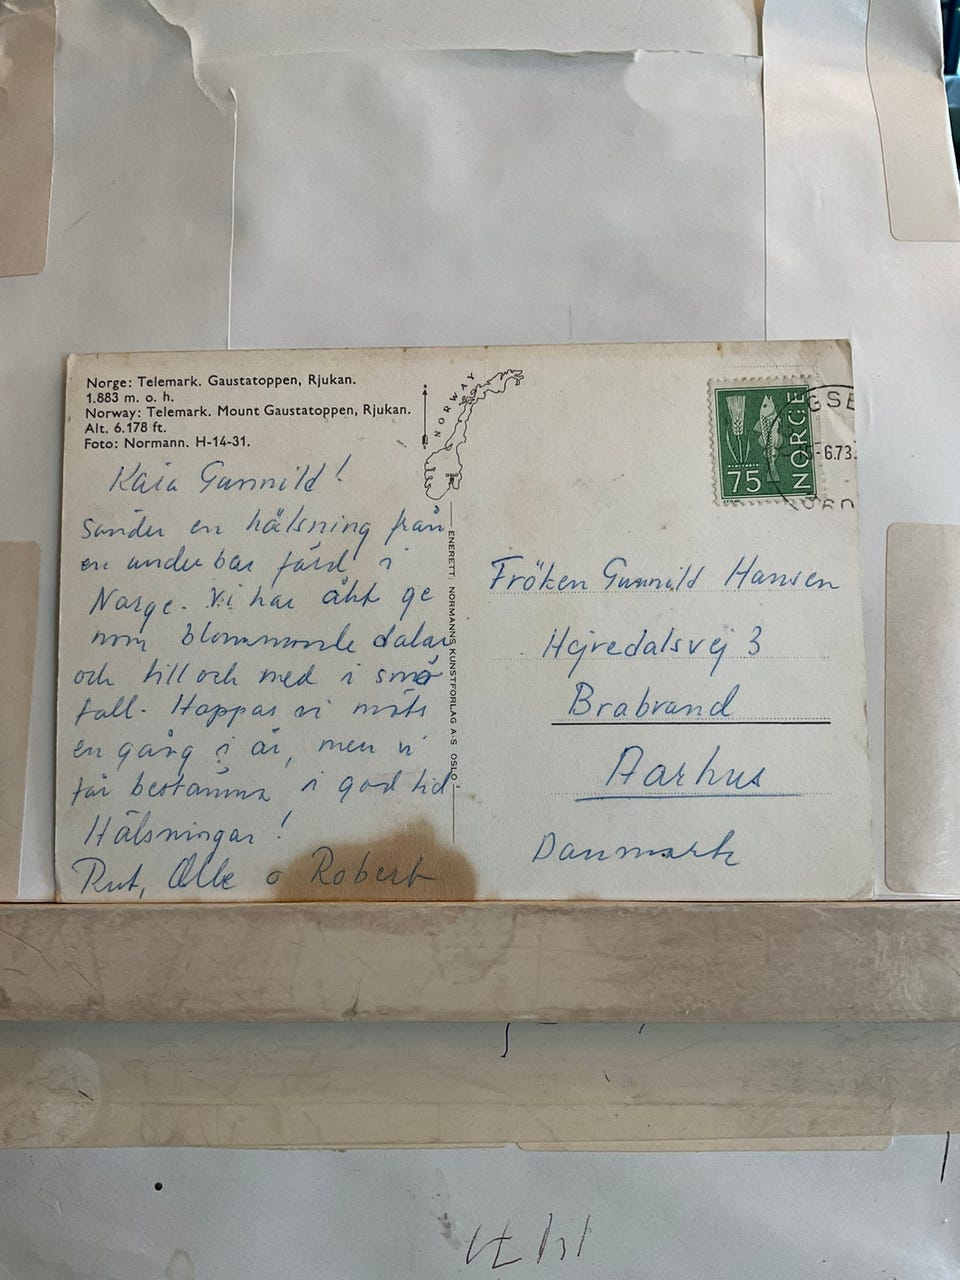 Norge: Telemark. Gaustatoppen, Rjukan.
1.883 m. o. h.
Norway: Telemark. Mount Gaustatoppen, Rjukan.
Alt. 6.178 ft.
Foto: Normann. H-14-31.
NORWAY
OSLO
Kära Gunnild!
Sänder en hälsning från
en underbar färd i
Norge. Vi har åkt ge
nom blommande dalar
och till och med i snö
fall. Hoppas vi möts
en gång i år, men vi
får bestämma i god tid.
Hälsningar!
Rut, Olle o Robert
ENERETT: NORMANNS KUNSTFORLAG A-S OSLO
NORGE
75
GSB
-6.73.
Fröken Gunnild Hansen
Hejredalsvej 3
Brabrand
Aarhus
Danmark